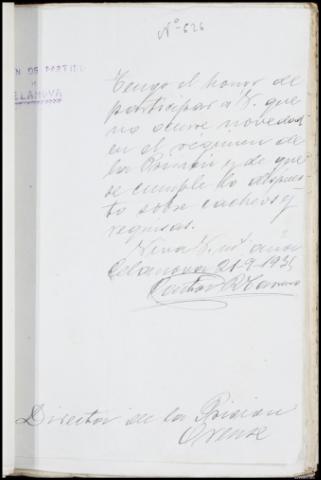 Nº-626
N DE PARTIDO
ELANOVA
Tengo el honor de
participar a V. que
no ocurre novedad
en el regimen de
la Prisión y de que
se cumple lo dispues-
to sobre cacheos y
requisas.
Viva V. ms. años
Celanova 21-9-193
Director de la Prision
Orense